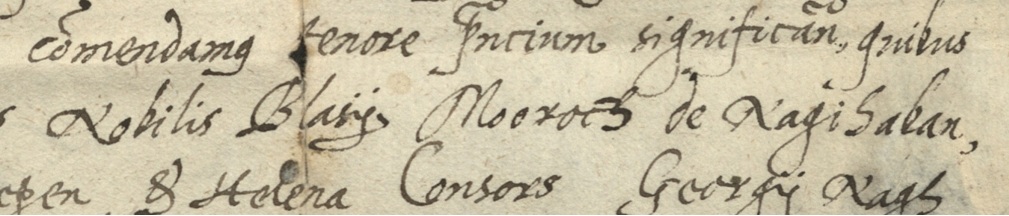 cōmendamq tenore pn̄cium significan̄, quibus
Nobilis Blasij Moeroch de Nagihalan,
& Helena Consors Georgij Nagh